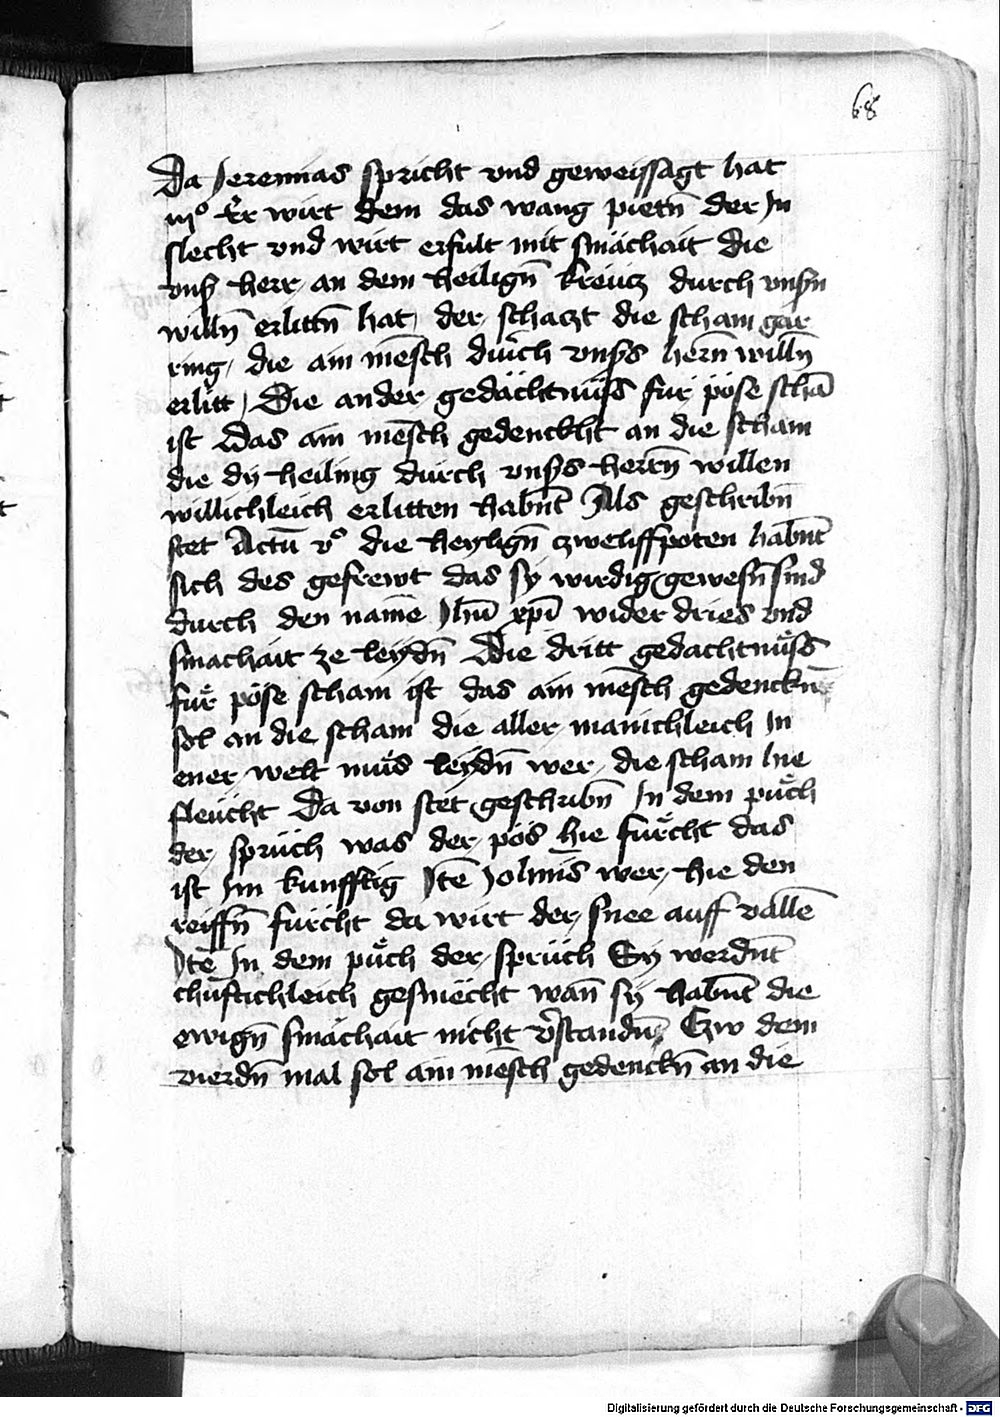 68
Da Jeremias spricht vnd geweissagt hat
iijº Er wirt dem das wang pietn̄ der Jn
slecht vnd wirt erfult mit smächait die
vnſs herr an dem heilign̄ krëucz durch vnſsn
willn̄ erlittn̄ hat der schaczt die scham gar
ring die ain mēsch durch vnſss hern̄ willn̄
erlitt Die ander gedächtnüss für pöse schā
ist Das ain mēsch gedenckht an die scham
die dy heiling durch vnſss herrn̄ willen
willichleich erlitten habn̄t Als geschribn̄
stet Actū vº die heylign̄ czweliffpoten habn̄t
sich des gefrewt das sy wirdig gewesn̄ sind
durch den namē Jhū xpī wider dries vnd
smachait ze leydn̄ Die dritt gedachtnüss
für pöse scham ist das ain mēsch gedenckn̄
sol an die scham die aller mänichleich Jn
ener welt müs leydn̄ wer die scham hie
fleücht Da von stet geschribn̄ Jn dem püch
der sprüch was der pös hie fürcht das
ist Jm kunfftig Jtē Johnīs wer hie den
reiffn̄ fürcht da wirt der snee auff vallē
Jtē Jn dem püch der sprüch Sy werdn̄t
chüftichleich gesmëcht wan̄ sy habn̄t die
ewign̄ smächait nicht v̄standn̄ Czw dem
vierdn̄ mal sol ain mēsch gedenckn̄ an die
Digitalisierung gefördert durch die Deutsche Forschungsgemeinschaft - DFG